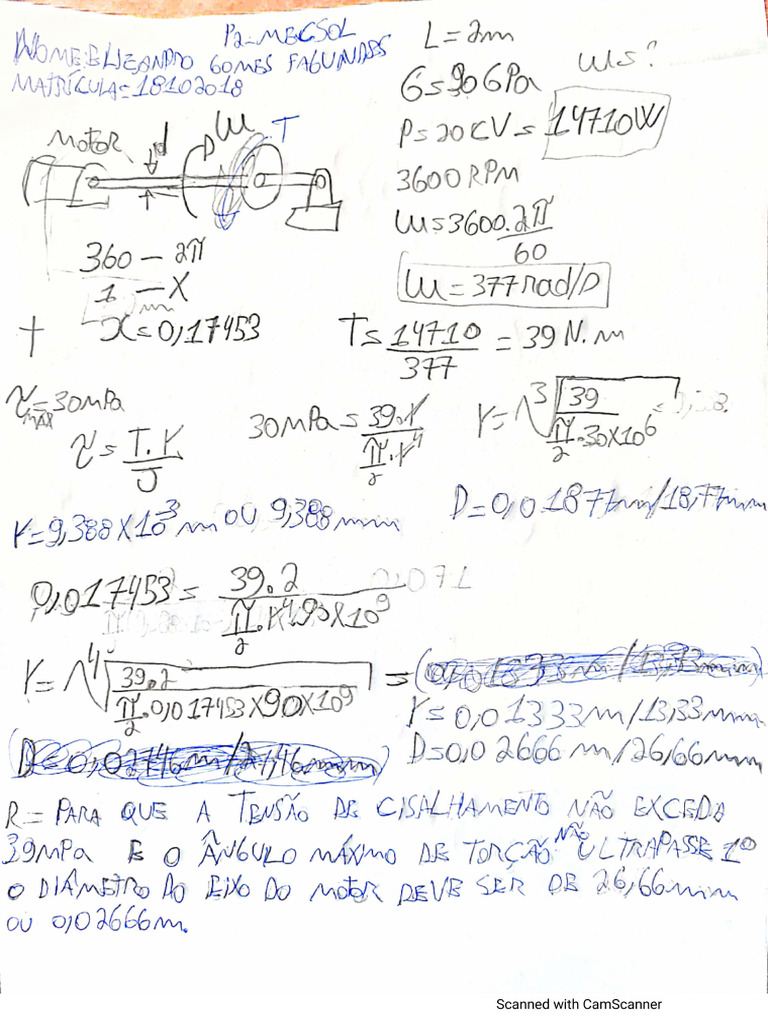 P2=MECSOL
NOME: ELIZANDRO GOMES FAGUNDES
MATRÍCULA=18102018
L=2m
G=90GPa
W=?
P=20CV=14710W
3600RPM
W=3600.2π
60
W=377rad/s
MOTOR
d
W
T
360 — 2π
1 — X
X=0,17453
T=14710 = 39 N.m
377
τ=30MPa
MAX
τ=T.r
J
30MPa=39.r
π.r⁴
2
r=³√39
π.30x10⁶
2
r=9,388x10⁻³m ou 9,388mm
D=0,01877m/18,77mm
0,017453=39.2
π.r⁴.90x10⁹
2
r=⁴√39.2 =
π.0,017453x90x10⁹
2
r=0,01333m/13,33mm
D=0,02666m/26,66mm
R=PARA QUE A TENSÃO DE CISALHAMENTO NÃO EXCEDA
39MPa E O ÂNGULO MÁXIMO DE TORÇÃO NÃO ULTRAPASSE 1º
O DIÂMETRO DO EIXO DO MOTOR DEVE SER DE 26,66mm
OU 0,02666m.
Scanned with CamScanner